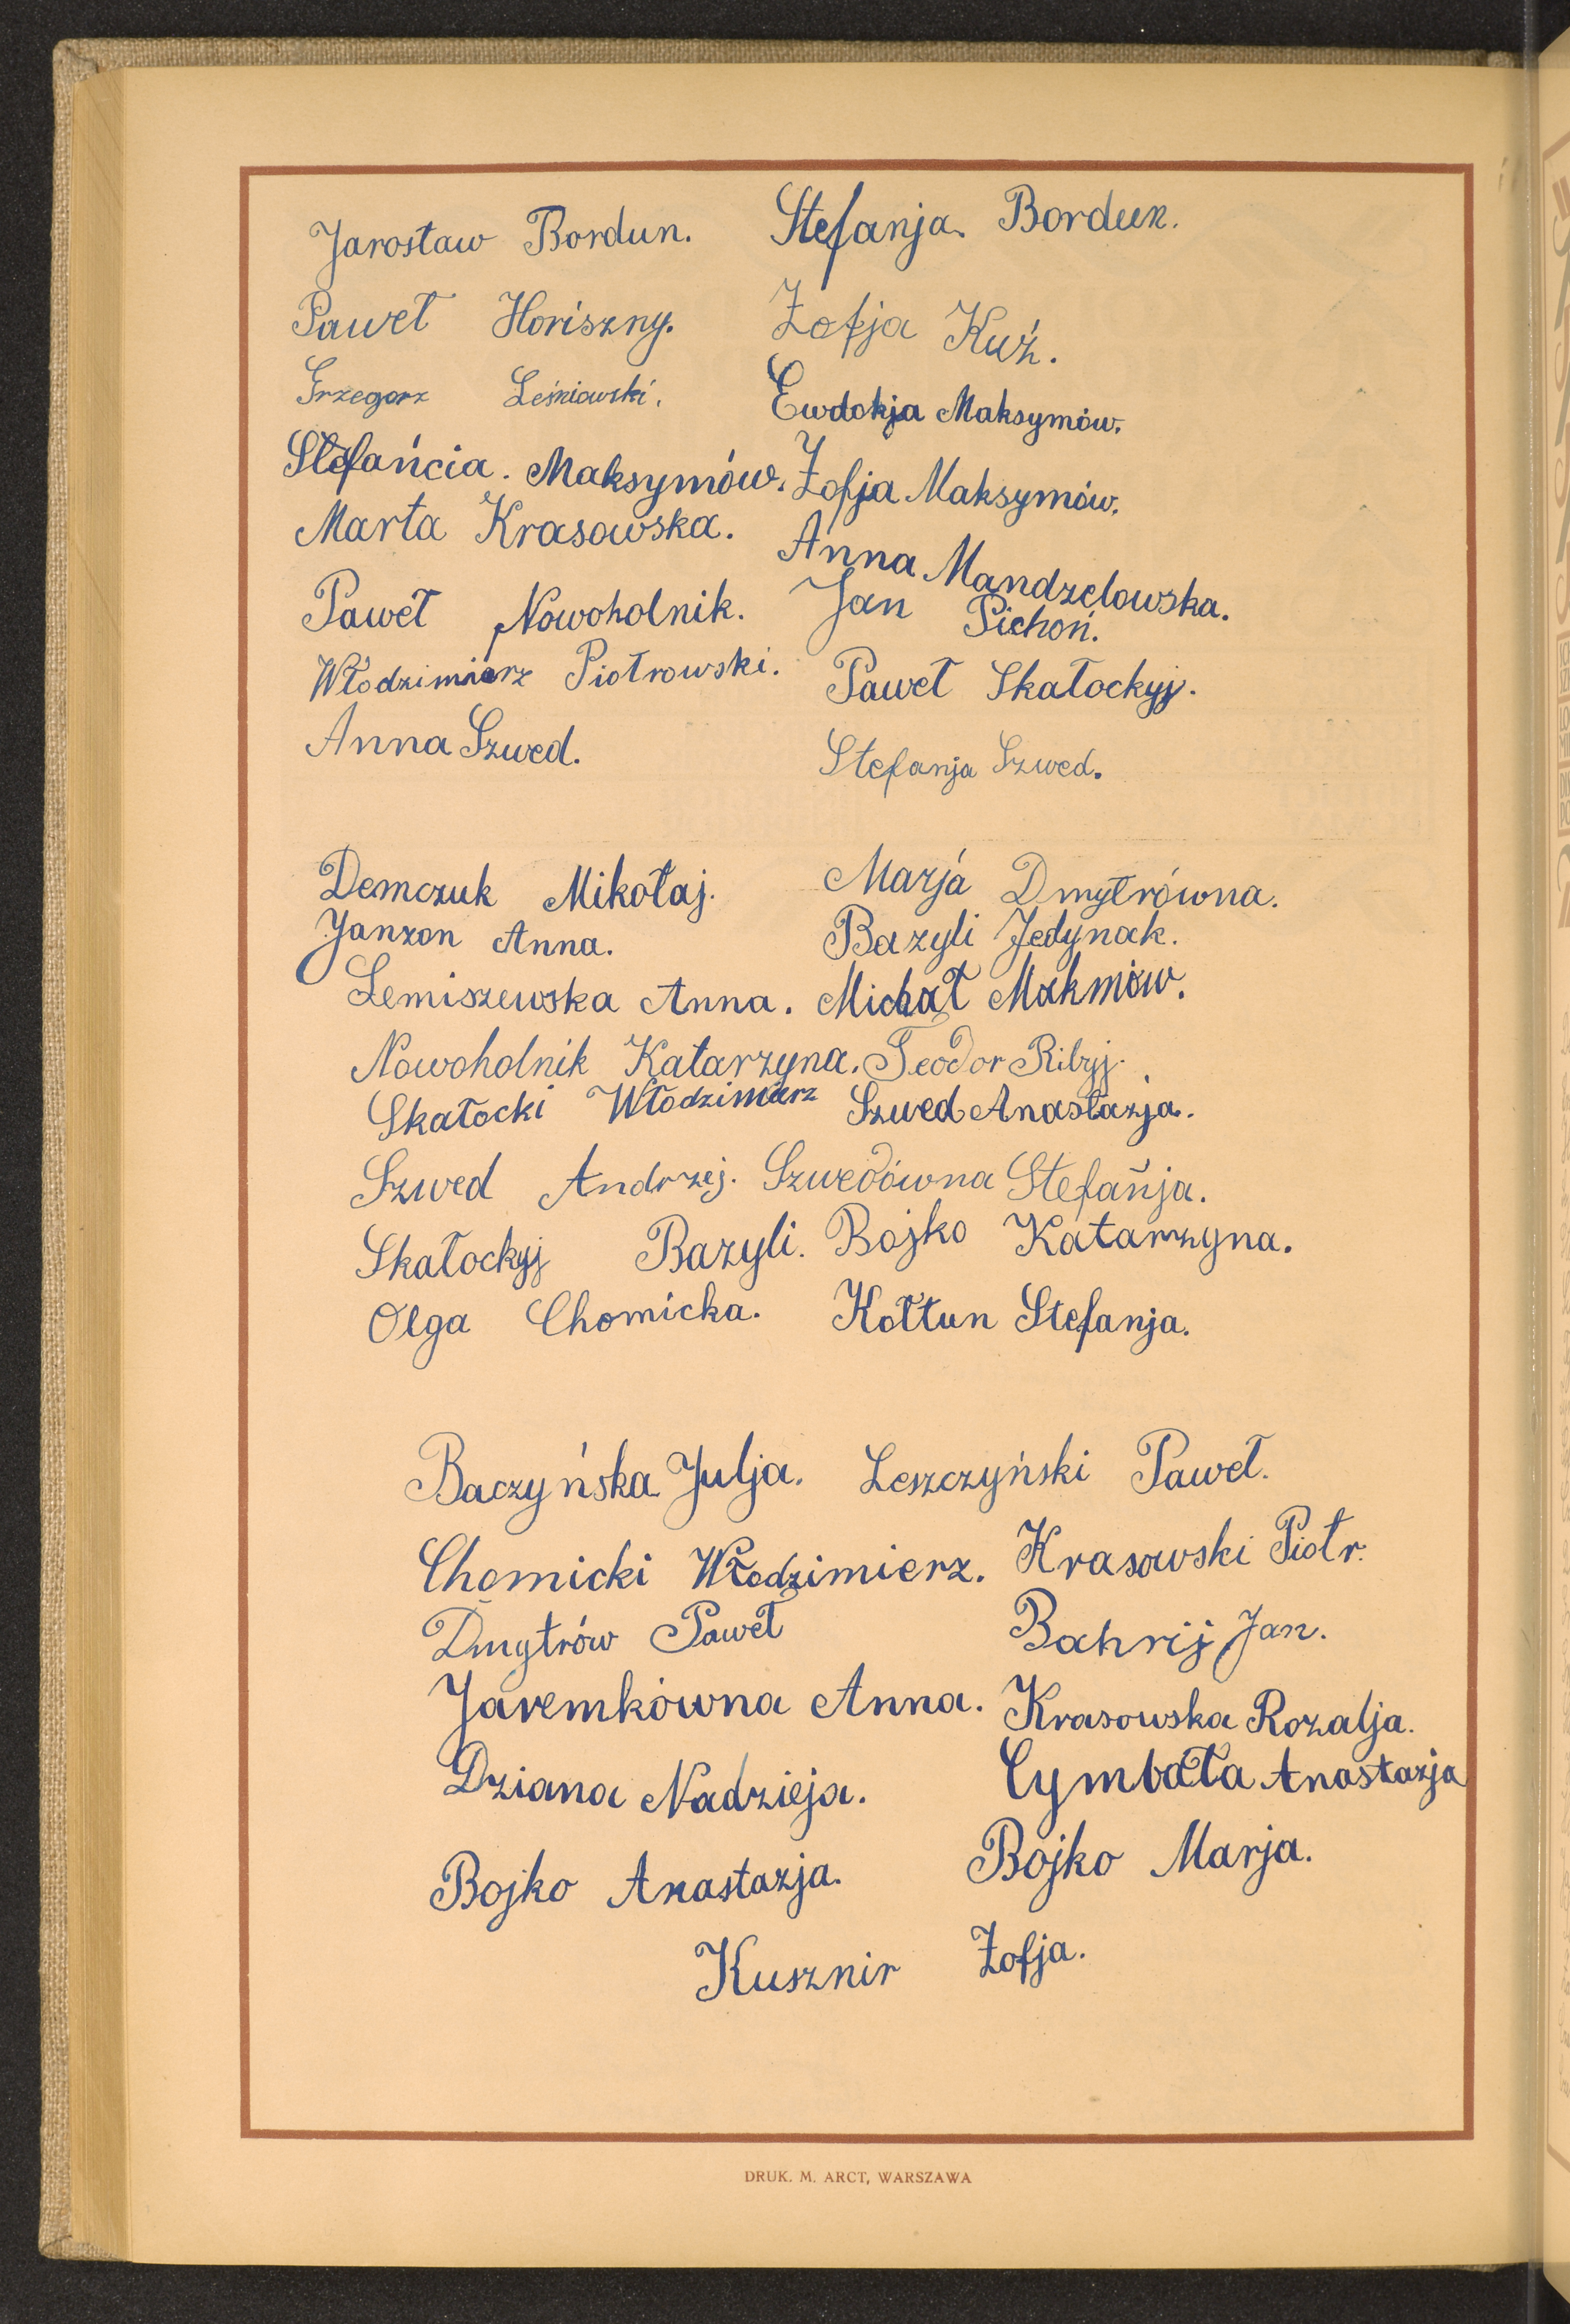 Jarosław Bordun. Stefanja Bordun.
Paweł Horiszny. Zofja Kuź.
Grzegorz Leśniawski. Ewdokja Maksymów.
Stefańcia. Maksymów. Zofja Maksymów.
Marta Krasowska. Anna Mandzelowska.
Paweł Nowoholnik. Jan Pichoń.
Włodzimierz Piotrowski. Paweł Skałockyj.
Anna Szwed. Stefanja Szwed.
Demczuk Mikołaj. Marja Dmytrówna.
Janzon Anna. Bazyli Jedynak.
Lemiszewska Anna. Michał Makmów.
Nowoholnik Katarzyna. Teodor Ribyj.
Skałocki Włodzimierz Szwed Anastazja.
Szwed Andrzej. Szwedówna Stefanja.
Skałockyj Bazyli. Bojko Katarzyna.
Olga Chomicka. Kołtun Stefanja.
Baczyńska Julja. Leszczyński Paweł.
Chomicki Włodzimierz. Krasowski Piotr.
Dmytrów Paweł Bahrij Jan.
Jaremkówna Anna. Krasowska Rozalja.
Dziana Nadzieja. Cymbała Anastazja
Bojko Anastazja. Bojko Marja.
Kusznir Zofja.
DRUK. M. ARCT, WARSZAWA